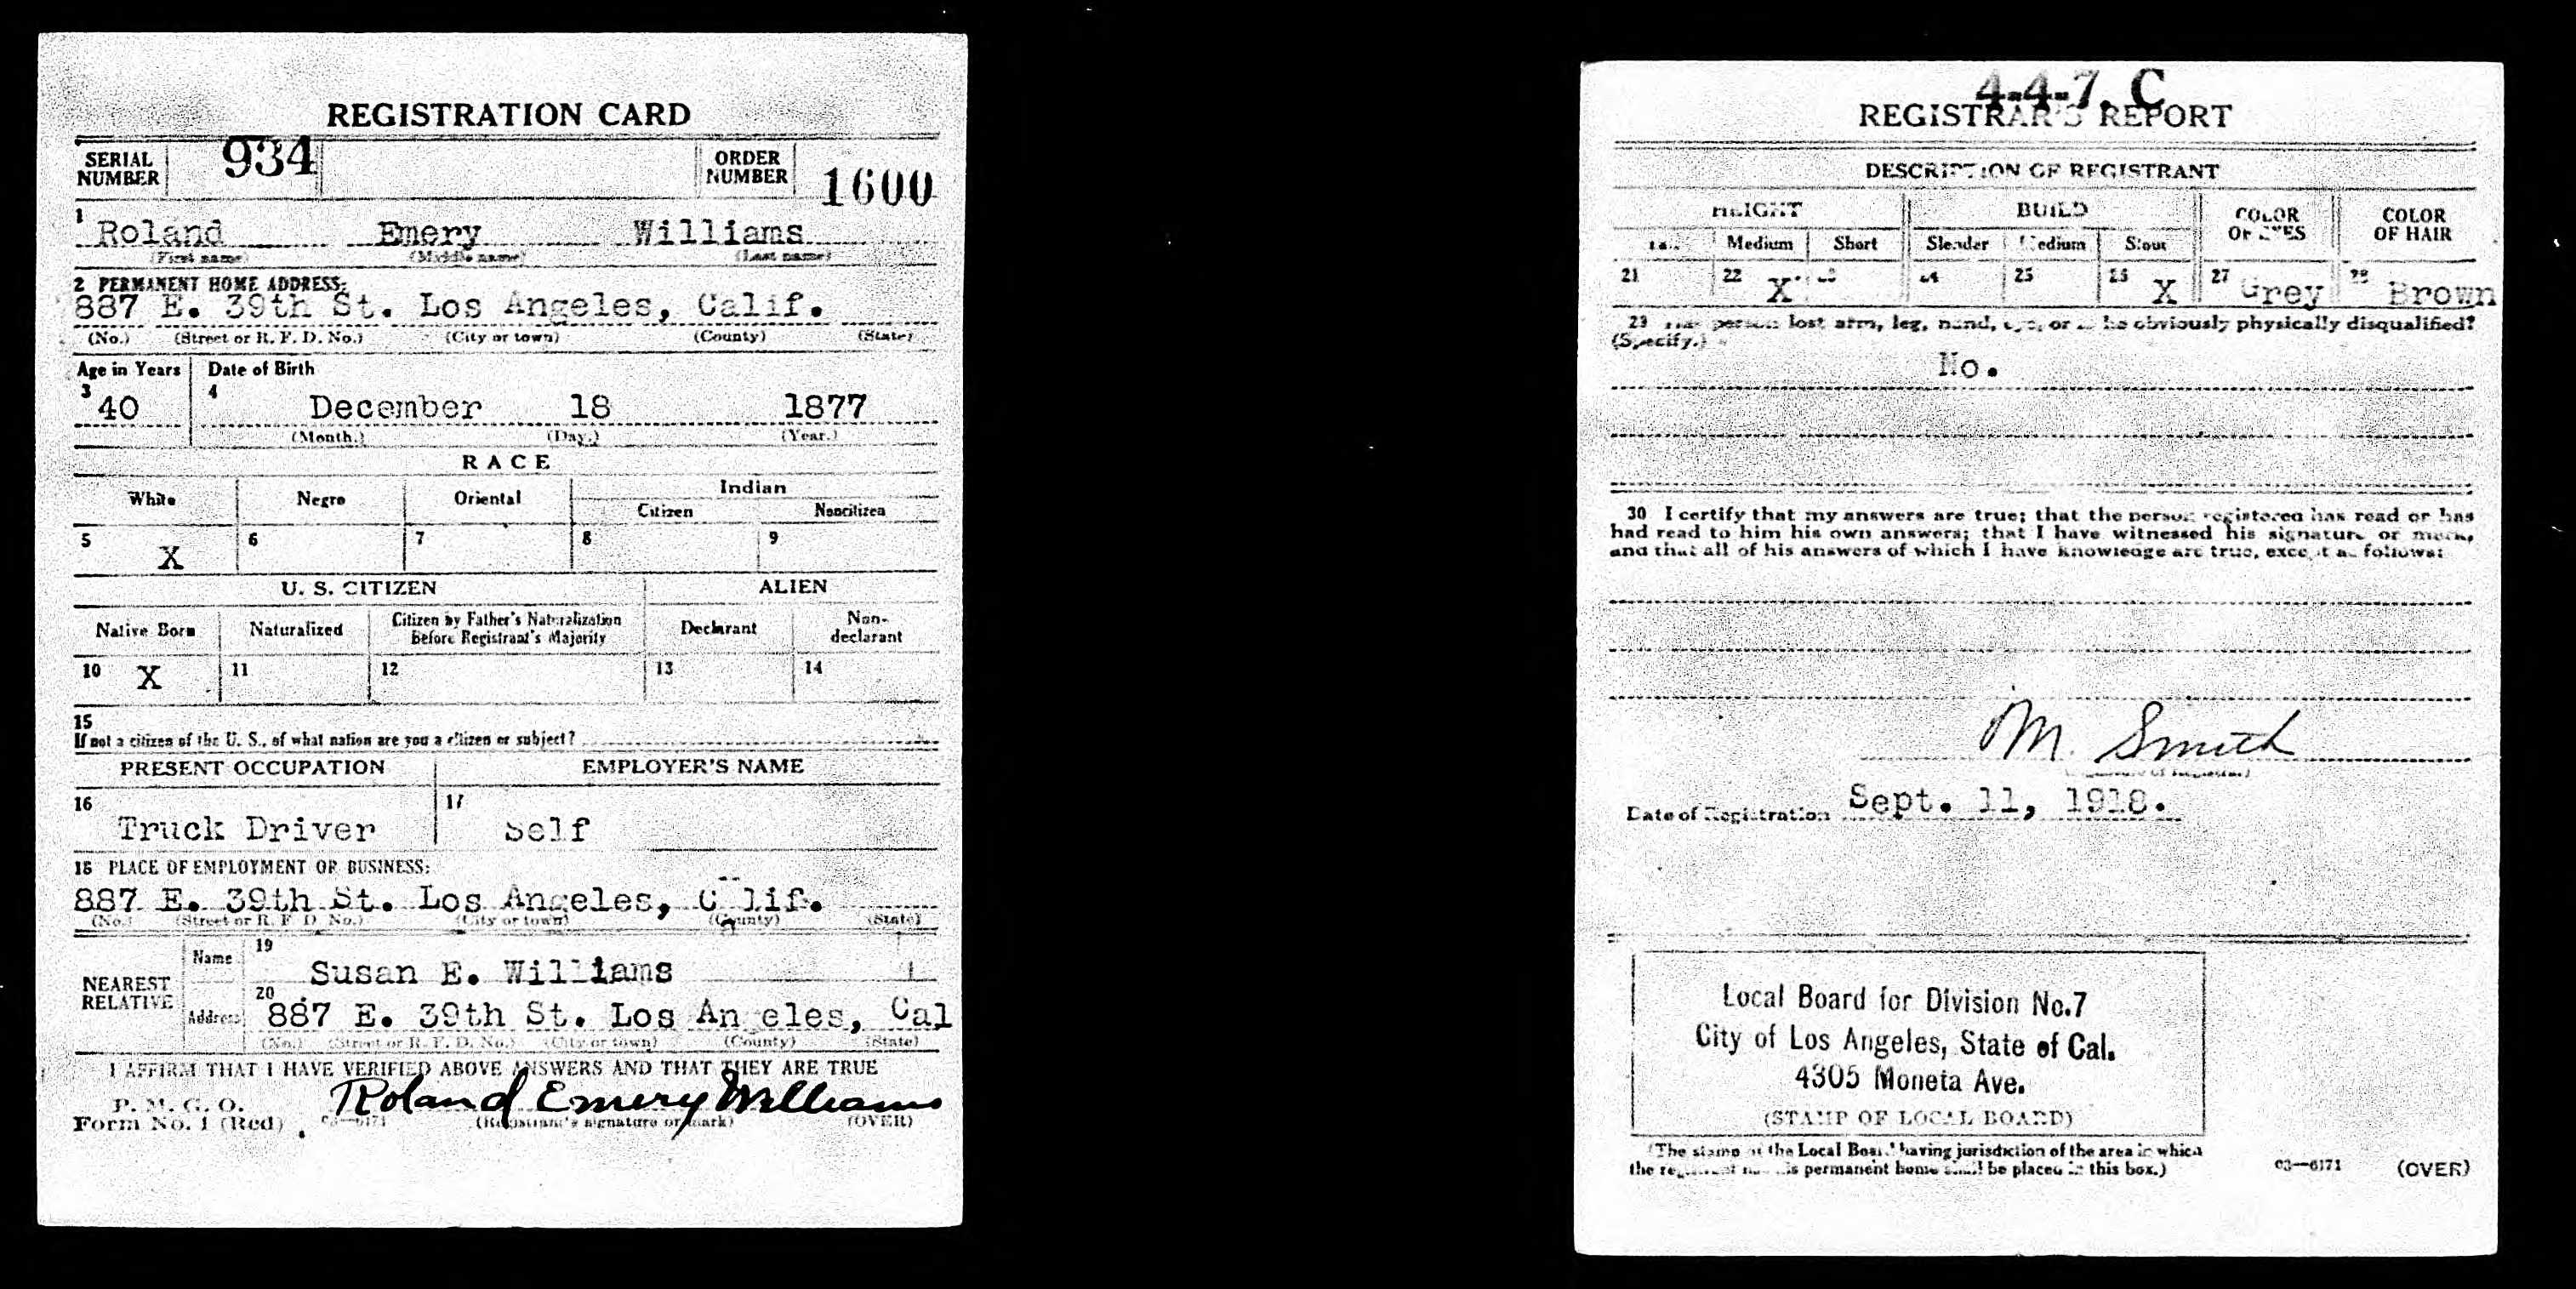 REGISTRATION CARD
SERIAL NUMBER 934 ORDER NUMBER 1600
1 Roland Emery Williams
(First name) (Middle name) (Last name)
2 PERMANENT HOME ADDRESS:
887 E. 39th St. Los Angeles, Calif.
(No.) (Street or R. F. D. No.) (City or town) (County) (State)
Age in Years Date of Birth
3 40 4 December 18 1877
(Month.) (Day.) (Year.)
RACE
White Negro Oriental Indian
Citizen Noncitizen
5 X 6 7 8 9
U. S. CITIZEN ALIEN
Native Born Naturalized Citizen by Father's Naturalization Before Registrant's Majority Declarant Non-declarant
10 X 11 12 13 14
15
If not a citizen of the U. S., of what nation are you a citizen or subject?
PRESENT OCCUPATION EMPLOYER'S NAME
16 Truck Driver 17 Self
18 PLACE OF EMPLOYMENT OR BUSINESS:
887 E. 39th St. Los Angeles, C lif.
a
(No.) (Street or R. F. D. No.) (City or town) (County) (State)
NEAREST RELATIVE
Name 19 Susan E. Williams
Address 20 887 E. 39th St. Los An eles, Cal
(No.) (Street or R. F. D. No.) (City or town) (County) (State)
I AFFIRM THAT I HAVE VERIFIED ABOVE ANSWERS AND THAT THEY ARE TRUE
P. M. G. O.
Form No. 1 (Red) 03—6171 Roland Emery Williams
(Registrant's signature or mark) (OVER)
4-4-7. C
REGISTRAR'S REPORT
DESCRIPTION OF REGISTRANT
HEIGHT BUILD COLOR OF EYES COLOR OF HAIR
Tall Medium Short Slender Medium Stout
21 22 X 23 24 25 26 X 27 Grey 28 Brown
29 Has person lost arm, leg, hand, eye, or is he obviously physically disqualified?
(Specify.)
No.
30 I certify that my answers are true; that the person registered has read or has
had read to him his own answers; that I have witnessed his signature or mark,
and that all of his answers of which I have knowledge are true, except as follows:
M. Smith
(Signature of Registrar)
Date of Registration Sept. 11, 1918.
Local Board for Division No.7
City of Los Angeles, State of Cal.
4305 Moneta Ave.
(STAMP OF LOCAL BOARD)
(The stamp of the Local Board having jurisdiction of the area in which
the registrant has his permanent home shall be placed in this box.)
03—6171 (OVER)